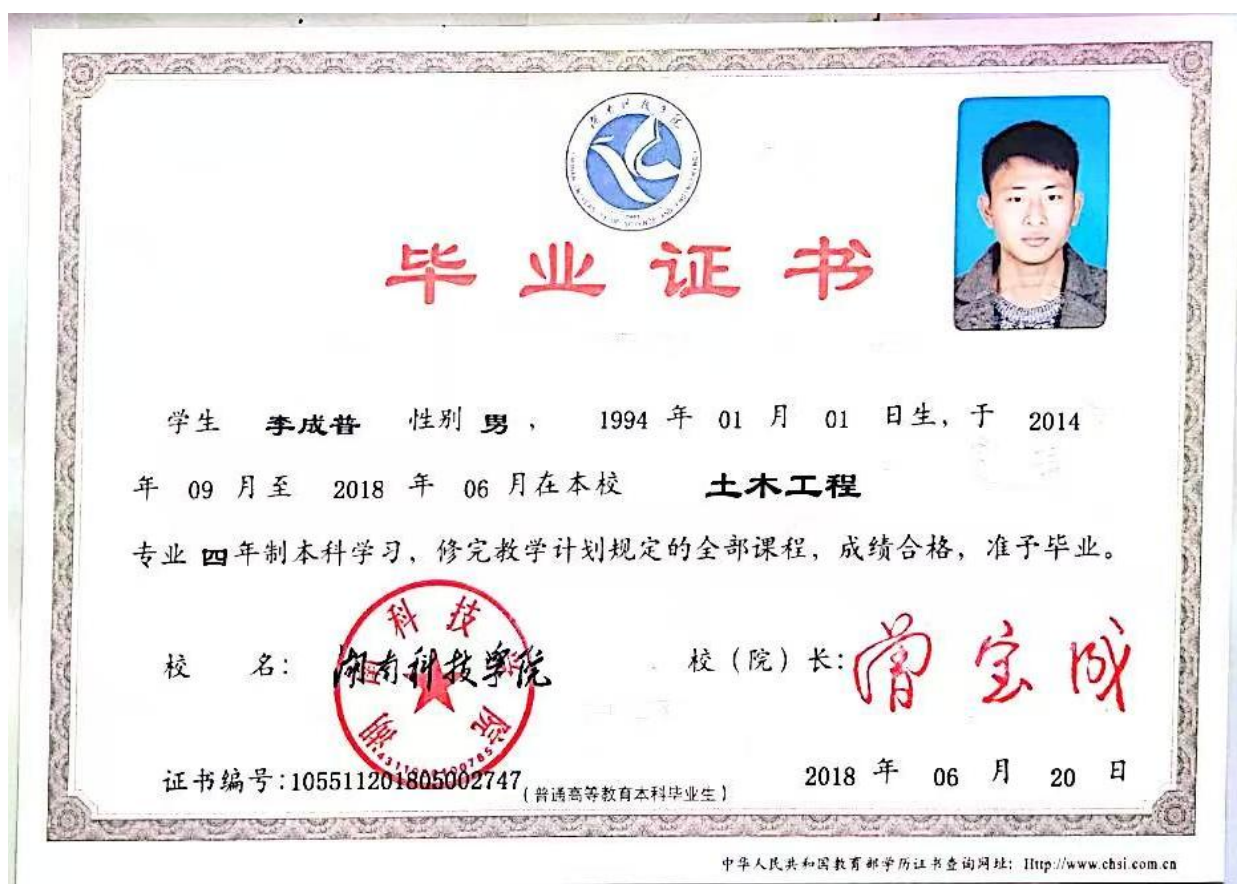 毕业证书
学生 李成普 性别 男 , 1994 年 01 月 01 日生, 于 2014
年 09 月至 2018 年 06 月在本校 土木工程
专业 四年制本科学习, 修完教学计划规定的全部课程, 成绩合格, 准予毕业。
校 名: 湖南科技学院 校(院)长: 曾宝成
证书编号:105511201805002747 (普通高等教育本科毕业生) 2018 年 06 月 20 日
中华人民共和国教育部学历证书查询网址: Http://www.chsi.com.cn